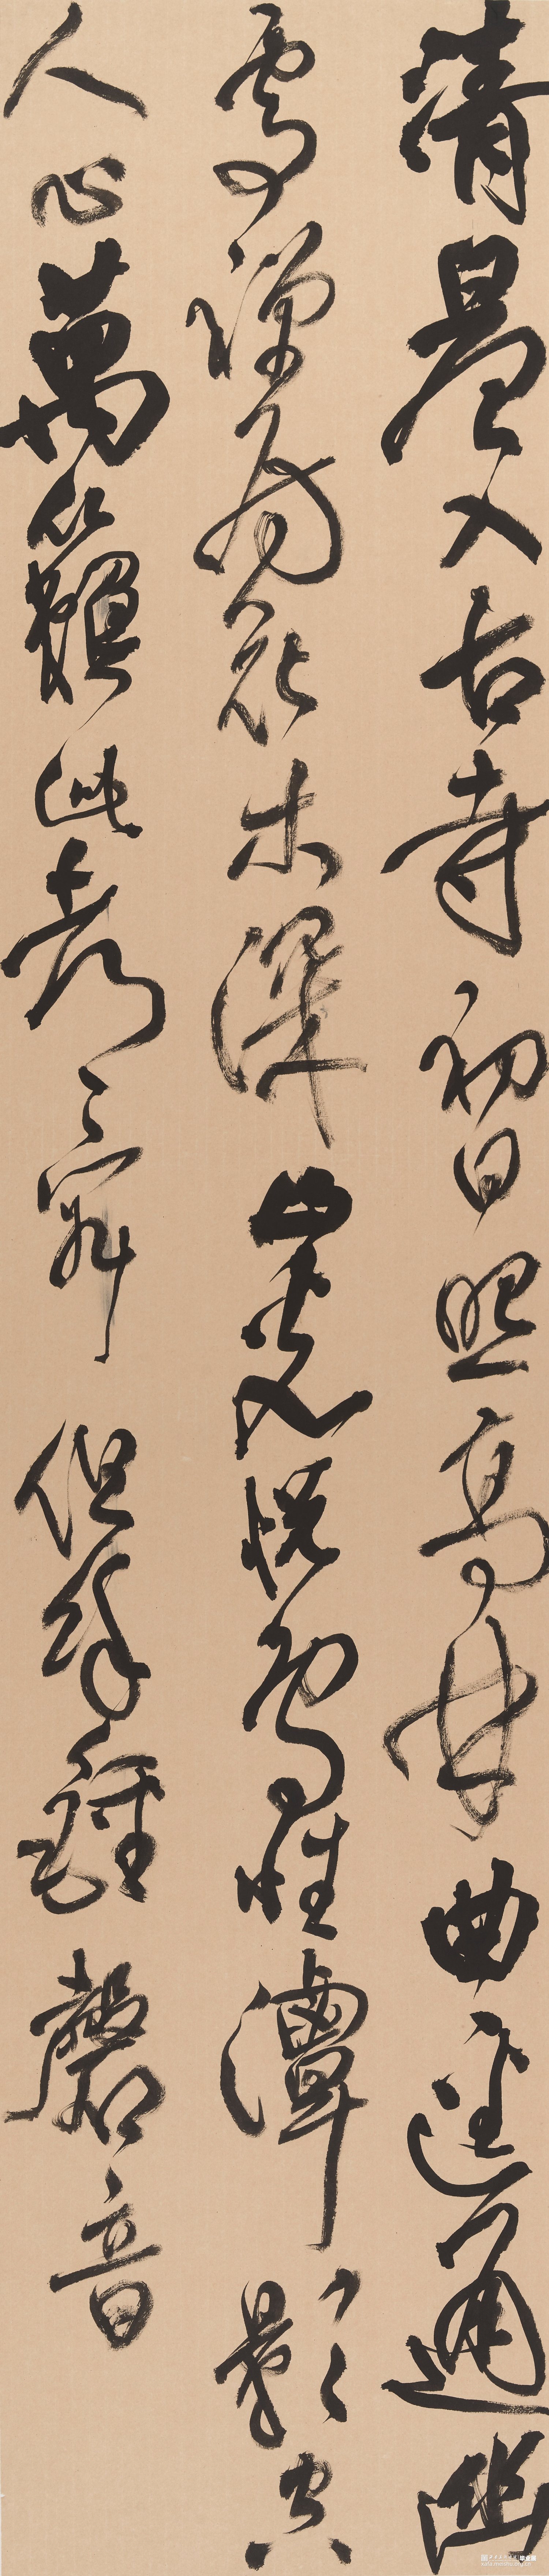 清晨入古寺初日照高林曲逕通幽
處禪房花木深山光悦鳥性潭影空
人心萬籟此都寂但餘鍾磬音